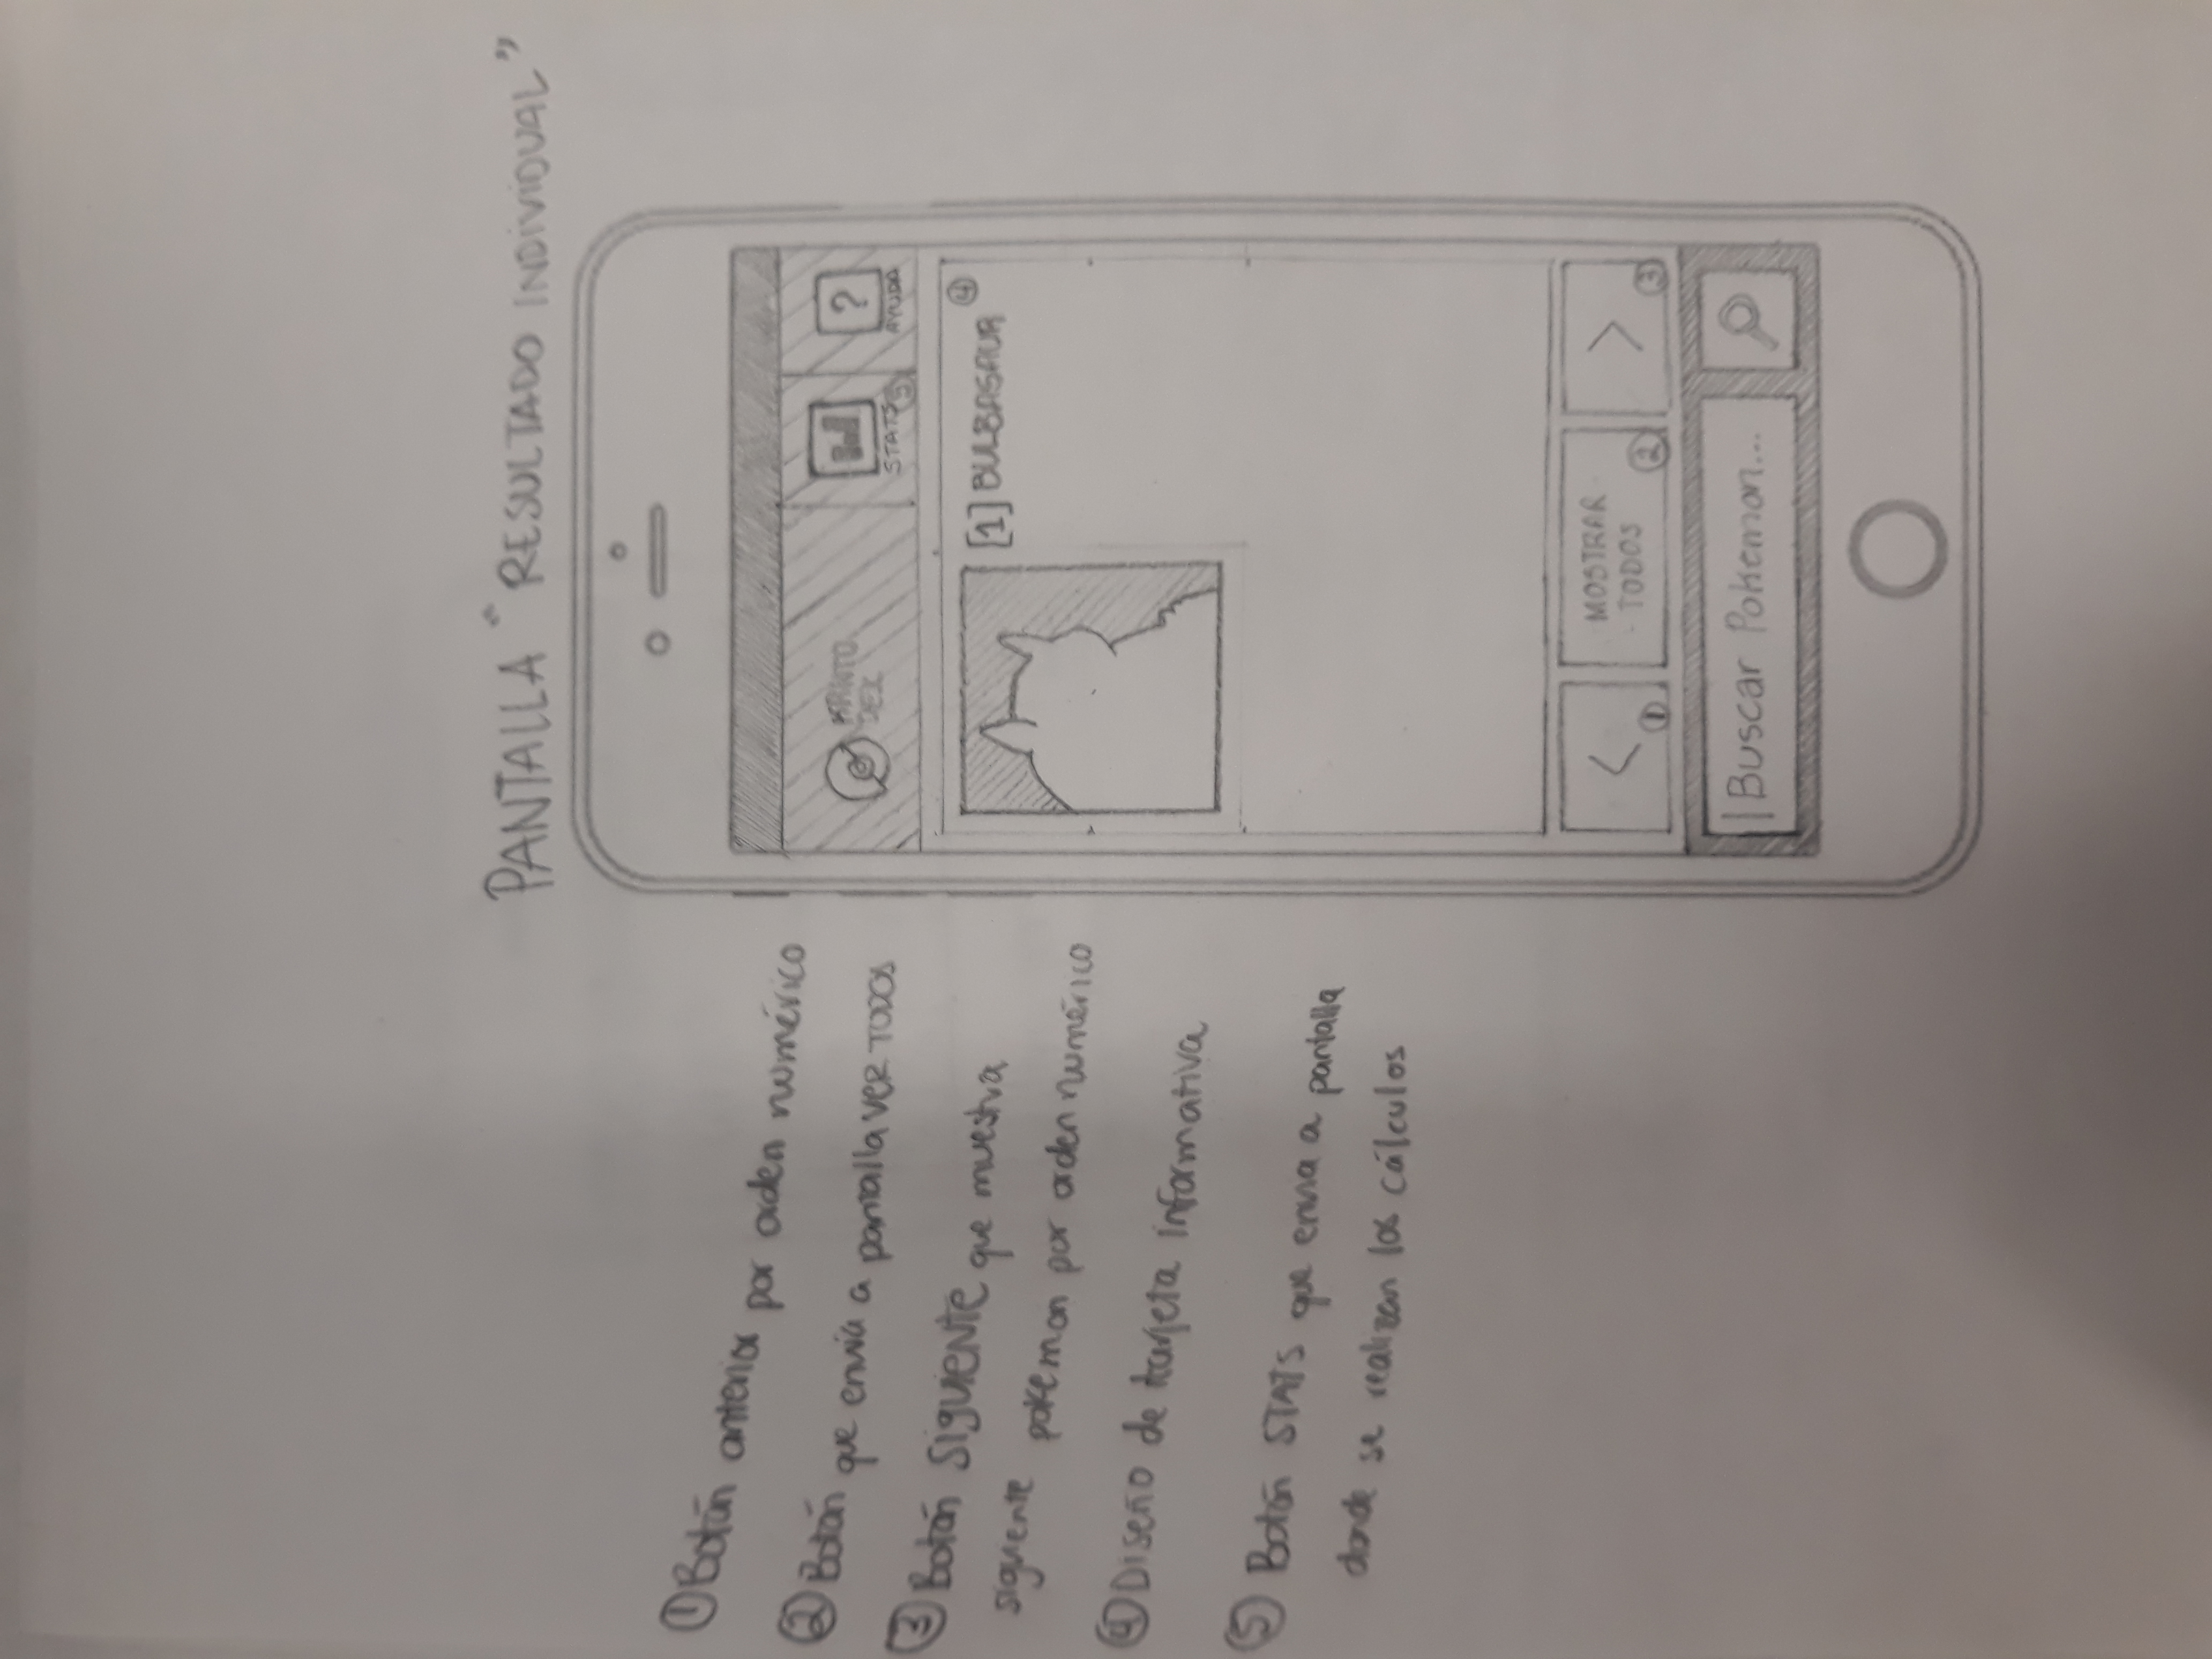 PANTALLA "RESULTADO INDIVIDUAL"
① Botón anterior por orden numérico
② Botón que envía a pantalla VER TODOS
③ Botón SIGUIENTE que muestra
siguiente pokemon por orden numérico
④ Diseño de tarjeta informativa
⑤ Botón STATS que envia a pantalla
donde se realizan los cálculos
KANTO
DEX
STATS ⑤
?
AYUDA
[1] BULBASAUR ④
< ①
MOSTRAR
TODOS ②
> ③
|Buscar Pokemon...